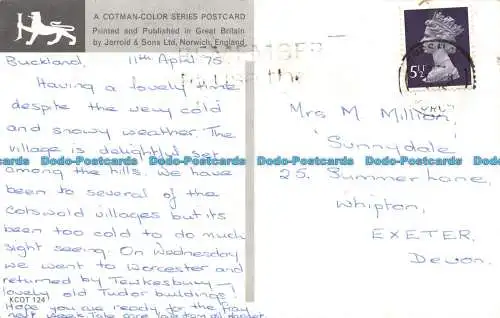 A COTMAN-COLOR SERIES POSTCARD
Printed and Published in Great Britain
by Jarrold & Sons Ltd, Norwich, England
Buckland. 11th April 75
Having a lovely time
despite the very cold
and snowy weather. The
village is delightful set
among the hills. We have
been to several of the
Cotswold villages but its
been too cold to do much
sight seeing. On Wednesday
we went to Worcester and
returned by Tewkesbury –
lovely old Tudor buildings!
Hope you are ready to the fray
next week. Take care
KCOT 124
REMEMBER
5½P
Mrs M. Million,
'Sunnydale'
25. Summer Lane,
Whipton,
EXETER.
Devon.
Dodo-Postcards Dodo-Postcards Dodo-Postcards Dodo-Postcards
Dodo-Postcards Dodo-Postcards Dodo-Postcards Dodo-Postcards